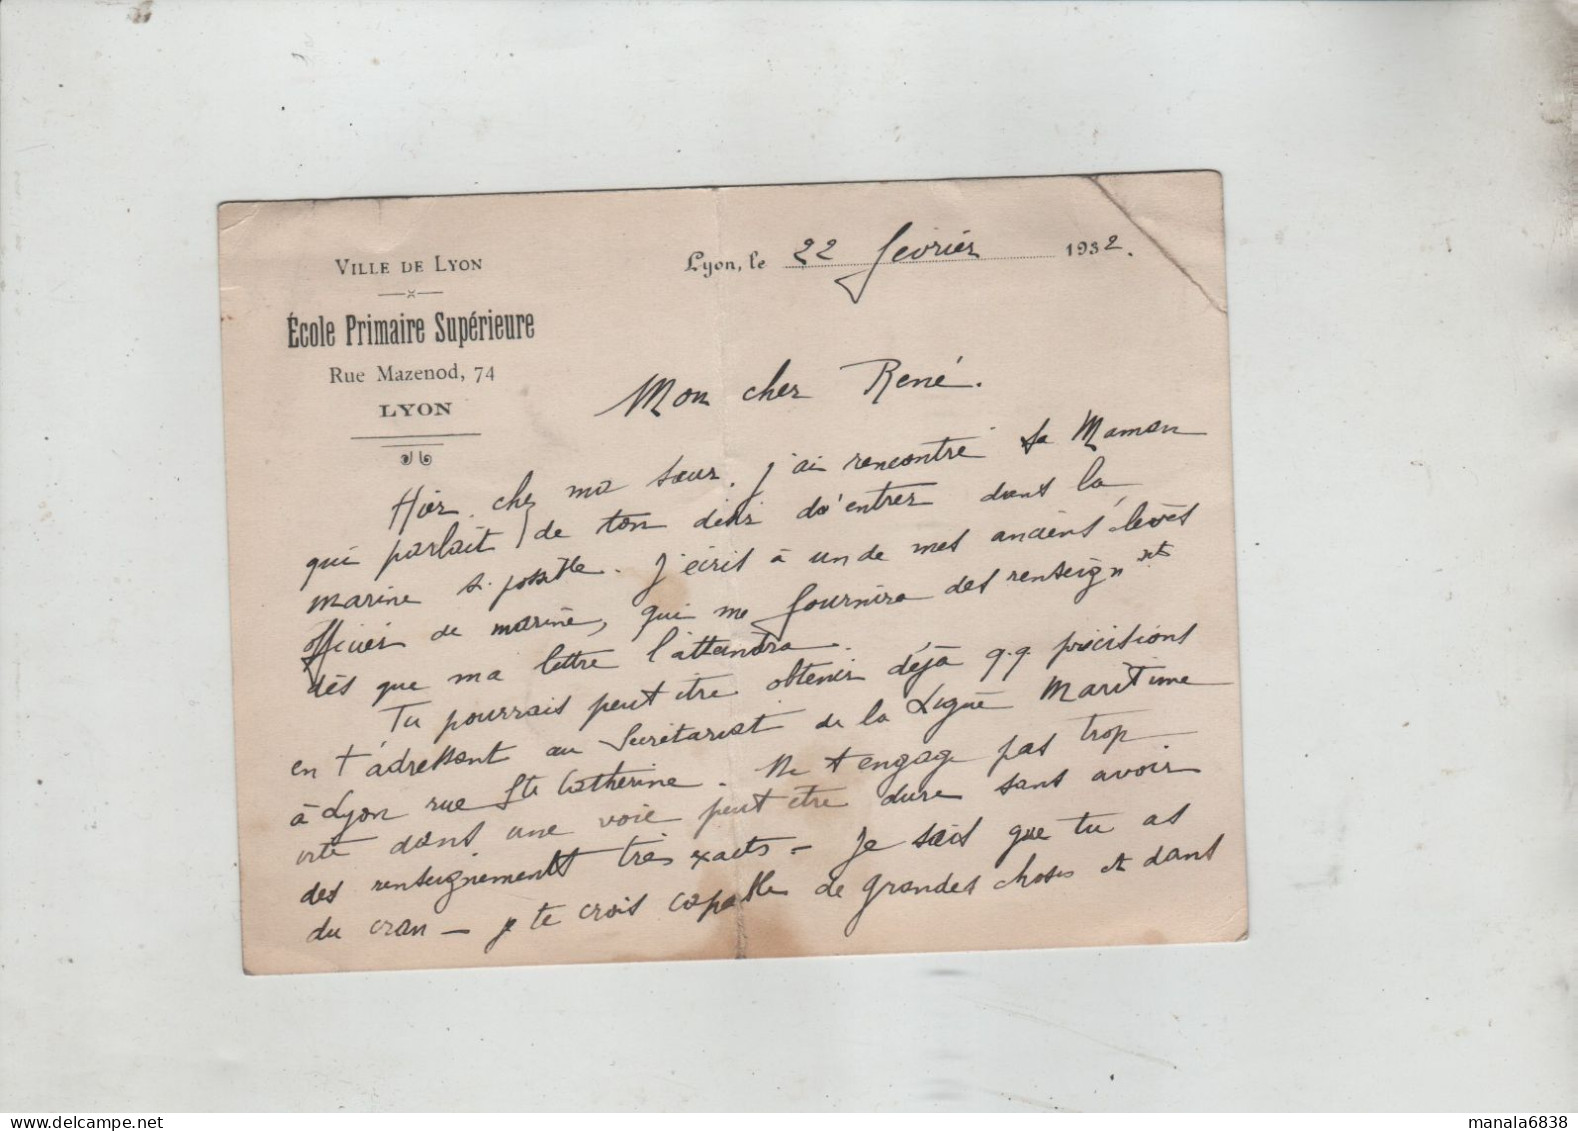 VILLE DE LYON
École Primaire Supérieure
Rue Mazenod, 74
LYON
Lyon, le 22 février 1932.
Mon cher René.
Hier, chez ma sœur, j'ai rencontré ta Maman
qui parlait de ton désir d'entrer dans la
marine si possible. J'écris à un de mes anciens élèves
officier de marine, qui me fournira des renseignnts
dès que ma lettre l'attendra.
Tu pourrais peut être obtenir déjà q.q précisions
en t'adressant au Secrétariat de la Ligue Maritime
à Lyon rue Ste Catherine. Ne t'engage pas trop
vite dans une voie peut être dure sans avoir
des renseignements très exacts – Je sais que tu as
du cran – je te crois capable de grandes choses et dans
manala6838